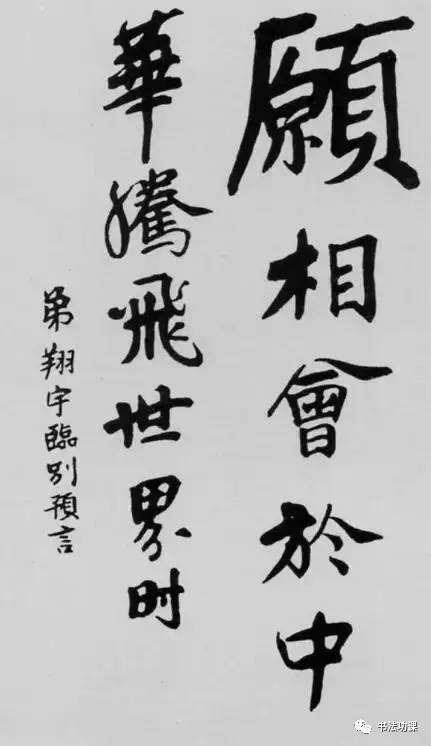 願相會於中
華騰飛世界时
弟翔宇臨别預言
书法功课